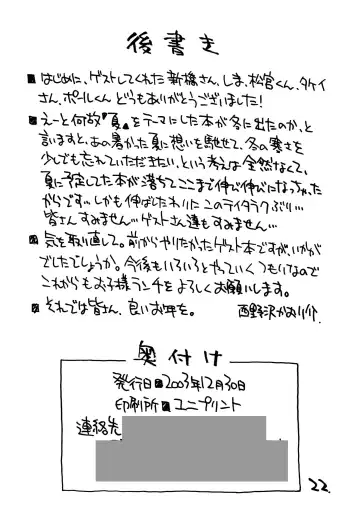 後書き
■はじめに、ゲストしてくれた新橋さん、しま、松官くん、タケイ
さん、ポールくん どうもありがとうございました!
■えーと何故『夏』をテーマにした本が冬に出たのか、と
言いますと、あの暑かった夏に想いを馳せて、冬の寒さを
少しでも忘れていただきたい、という考えは全然なくて、
夏に予定した本が落ちてここまで伸び伸びになっちゃった
からです… しかも伸ばしたわりにこのテイタラクぶり…
皆さんすみません… ゲストさん達もすみません…
■気を取り直して。前からやりたかったゲスト本ですが、いかが
でしたでしょうか。今後もいろいろとやっていくつもりなので
これからもお子様ランチをよろしくお願いします。
■それでは皆さん、良いお年を。 西野沢かおり介
奥付け
発行日■2003年12月30日
印刷所■ユニプリント
連絡先
22.